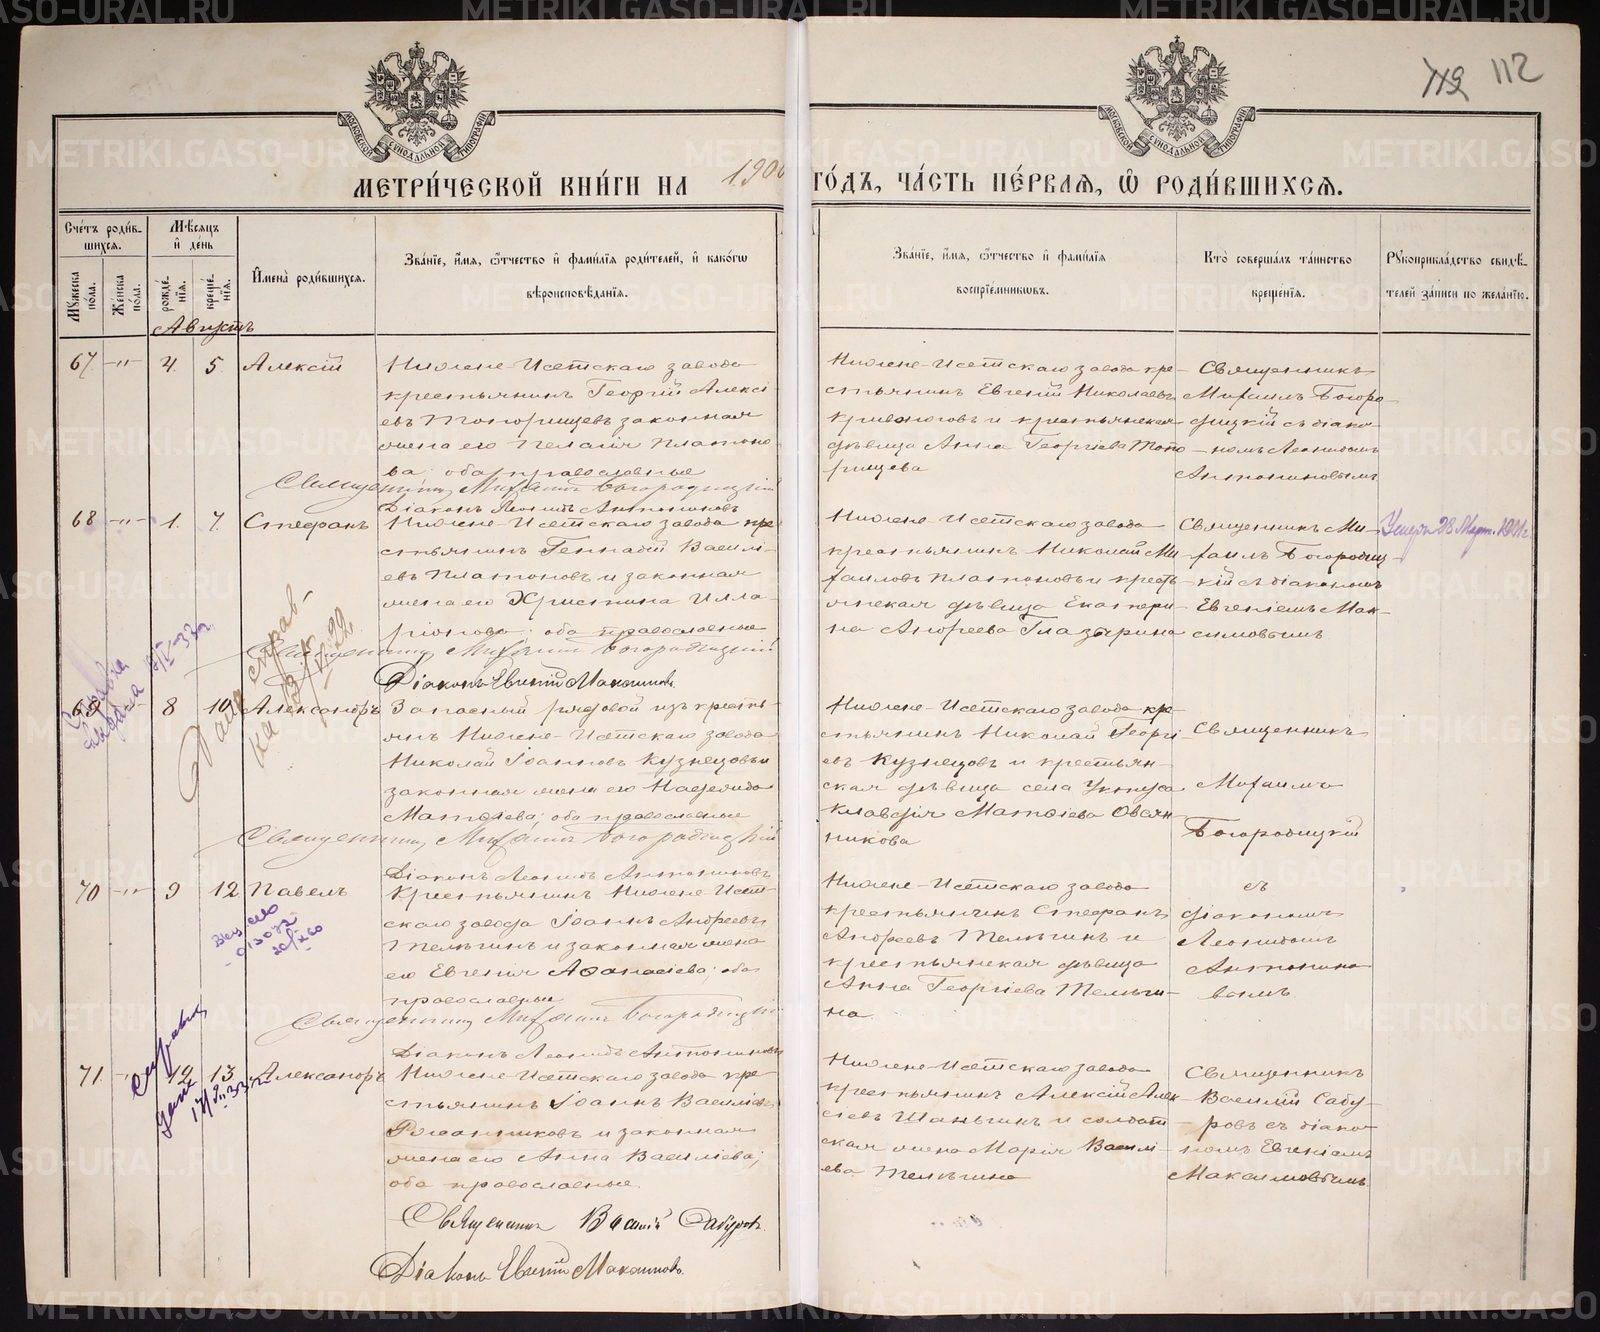 112
МЕТРИ́ЧЕСКОЙ КНИ́ГИ НА 1906 ГО́ДЪ, ЧА́СТЬ ПЕ́РВАЯ, Ѡ РОДИ́ВШИХСЯ.
МОСКОВСКОЙ СѴНОДАЛЬНОЙ ТИПОГРАФІИ
МОСКОВСКОЙ СѴНОДАЛЬНОЙ ТИПОГРАФІИ
Сче́тъ роди́в-
шихся.
Мѣ́сяцъ
и҆ де́нь
Мꙋжеска по́ла.
Же́нска по́ла.
рожде́-
нїя.
креще́-
нїя.
И҆мена̀ роди́вшихся.
Зва́нїе, и҆́мя, ѻ҆́тчество и҆ фами́лїя роди́телей, и҆ како́гѡ
вѣроисповѣ́данїя.
Зва́нїе, и҆́мя, ѻ҆́тчество и҆ фами́лїя
воспрїе́мникѡвъ.
Кто̀ соверша́лъ та́инство
креще́нїя.
Рꙋкоприкла́дство свидѣ́-
телей за́писи по жела́нїю.
Августъ
67 -"- 4. 5 Алексій
Нижне-Исетскаго завода
крестьянинъ Георгій Алексі-
евъ Топорищевъ законная
жена его Пелагія Платоно-
ва; оба православные
Священникъ Михаилъ Богородицкій
Діаконъ Леонидъ Антониновъ
Нижне-Исетскаго завода кре-
стьянинъ Евгеній Николаевъ
Кривоноговъ и крестьянская
дѣвица Анна Георгіева Топо-
рищева
Священникъ
Михаилъ Богоро-
дицкій съ діако-
номъ Леонидомъ
Антониновымъ
68 -"- 1. 7. Стефанъ
Нижне-Исетскаго завода кре-
стьянинъ Геннадій Василі-
евъ Платоновъ и законная
жена его Христина Илла-
ріонова; оба православные
Священникъ Михаилъ Богородицкій
Діаконъ Евгеній Максимовъ.
Нижне-Исетскаго завода
крестьянинъ Николай Ми-
хаиловъ Платоновъ и кресть-
янская дѣвица Екатери-
на Андреева Глазырина
Священникъ Ми-
хаилъ Богородиц-
кій съ діакономъ
Евгеніемъ Мак-
симовымъ
Умеръ 28 Март. 1921 г.
Дана справ-
ка
Справка
выдана
69 8 10 Александръ
Запасный рядовой изъ кресть-
янъ Нижне-Исетскаго завода
Николай Іоанновъ Кузнецовъ и
законная жена его Надежда
Матѳіева; оба православные
Священникъ Михаилъ Богородицкій
Діаконъ Леонидъ Антониновъ
Нижне-Исетскаго завода кре-
стьянинъ Николай Георгі-
евъ Кузнецовъ и крестьян-
ская дѣвица села Уктуса
Клавдія Матѳіева Овчин-
никова
Священникъ
Михаилъ
Богородицкій
70 -"- 9 12 Павелъ
Крестьянинъ Нижне-Исет-
скаго завода Іоаннъ Андреевъ
Телѣгинъ и законная жена
его Евгенія Аѳанасіева; оба
православные
Священникъ Михаилъ Богородицкій
Діаконъ Леонидъ Антониновъ
Нижне-Исетскаго завода
крестьянинъ Стефанъ
Андреевъ Телѣгинъ и
крестьянская дѣвица
Анна Георгіева Телѣги-
на.
съ
діакономъ
Леонидомъ
Антонино-
вымъ
Справка
дана
71. 12 13 Александръ
Нижне-Исетскаго завода кре-
стьянинъ Іоаннъ Василіевъ
Рожанниковъ и законная
жена его Анна Василіева;
оба православные.
Священникъ Василій Сабуровъ.
Діаконъ Евгеній Максимовъ.
Нижне-Исетскаго завода
крестьянинъ Алексій Алек-
сіевъ Шаньгинъ и солдат-
ская жена Марія Василі-
ева Телѣгина
Священникъ
Василій Сабу-
ровъ съ діако-
номъ Евгеніемъ
Максимовымъ.
METRIKI.GASO-URAL.RU